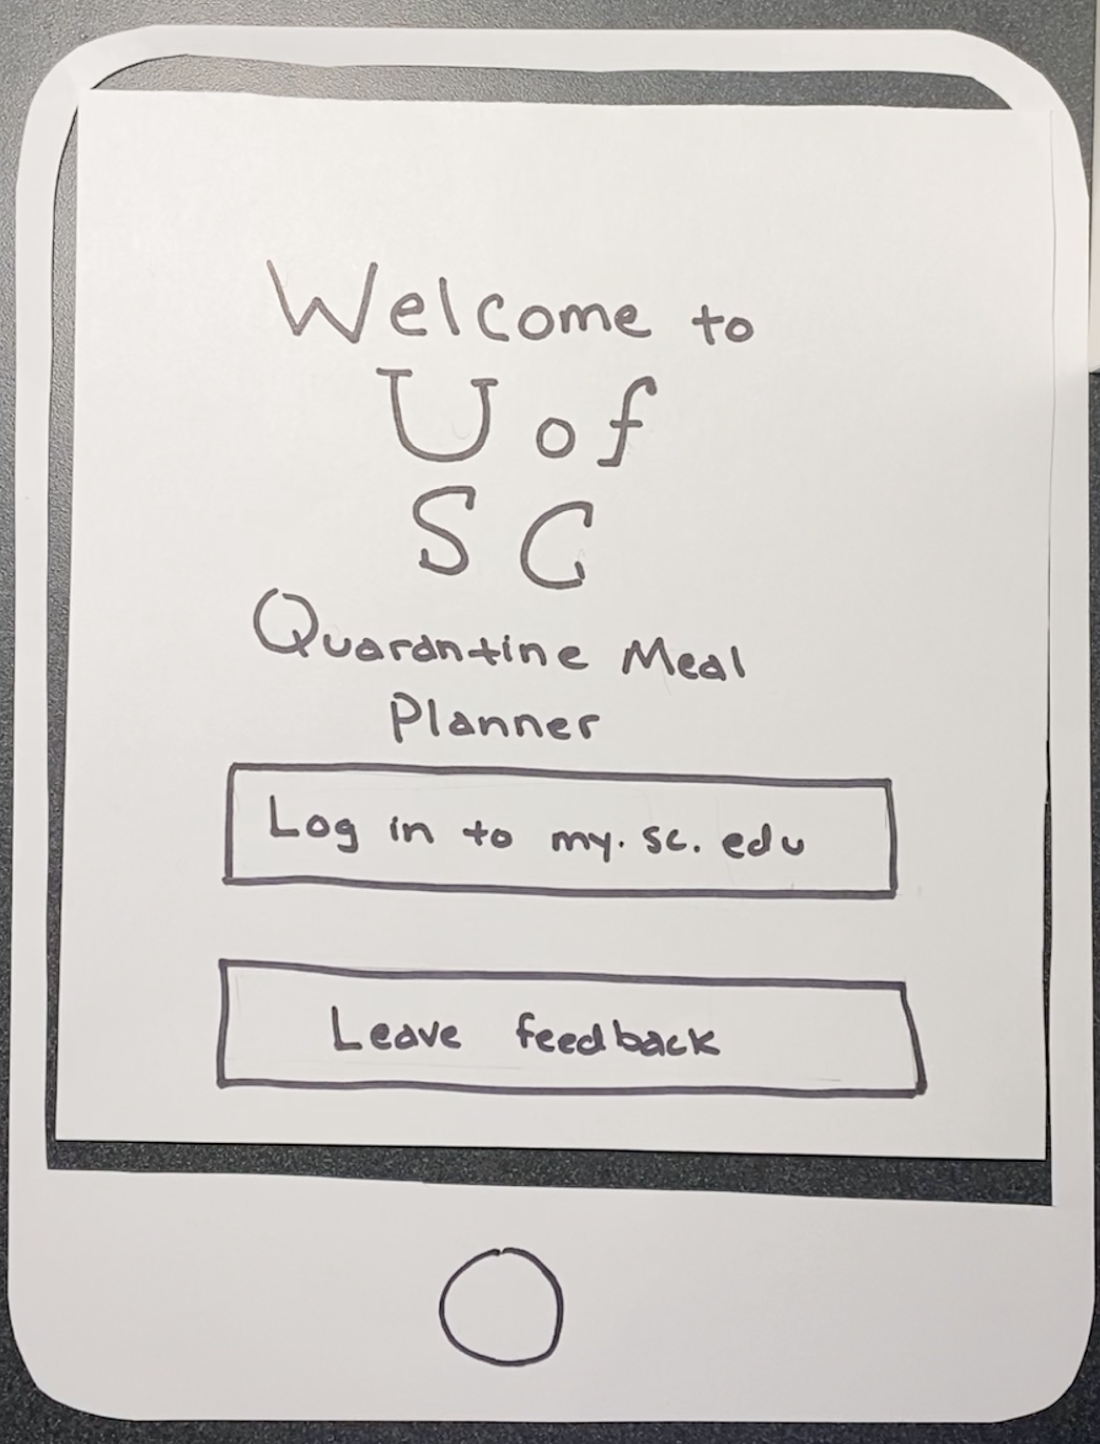 Welcome to
U of
SC
Quarantine Meal
Planner
Log in to my.sc.edu
Leave feedback